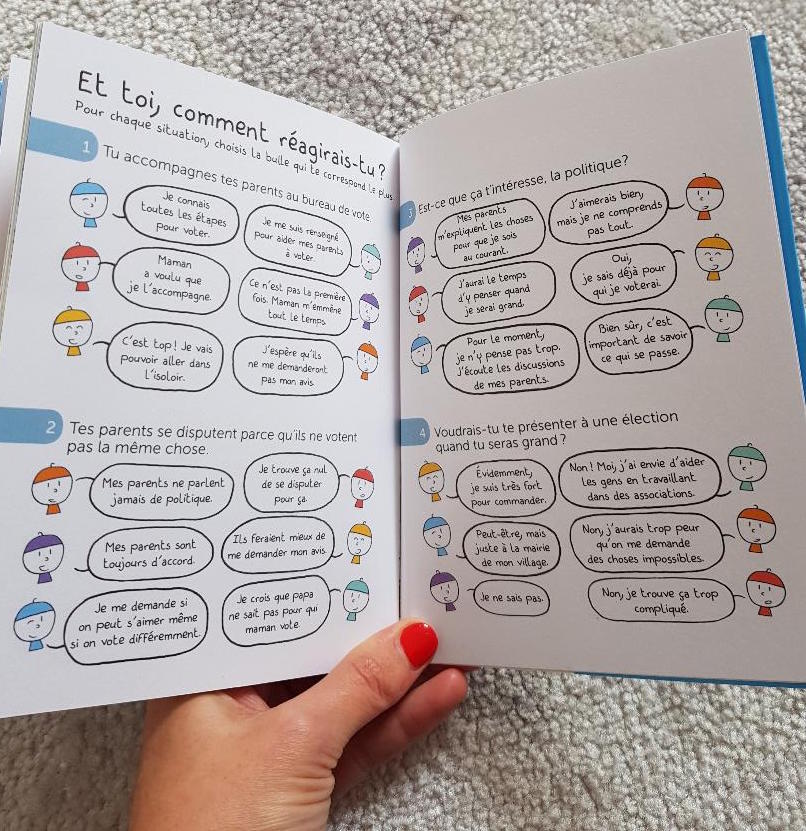 Et toi, comment réagirais-tu ?
Pour chaque situation, choisis la bulle qui te correspond le plus
1
Tu accompagnes tes parents au bureau de vote
Je connais
toutes les étapes
pour voter.
Je me suis renseigné
pour aider mes parents
à voter.
Maman
a voulu que
je l'accompagne.
Ce n'est pas la première
fois. Maman m'emmène
tout le temps
C'est top ! Je vais
pouvoir aller dans
l'isoloir.
J'espère qu'ils
ne me demanderont
pas mon avis.
2
Tes parents se disputent parce qu'ils ne votent
pas la même chose.
Mes parents ne parlent
jamais de politique.
Je trouve ça nul
de se disputer
pour ça.
Mes parents sont
toujours d'accord.
Ils feraient mieux de
me demander mon avis.
Je me demande si
on peut s'aimer même
si on vote différemment.
Je crois que papa
ne sait pas pour qui
maman vote.
3
Est-ce que ça t'intéresse, la politique ?
Mes parents
m'expliquent les choses
pour que je sois
au courant.
J'aimerais bien,
mais je ne comprends
pas tout.
J'aurai le temps
d'y penser quand
je serai grand.
Oui,
je sais déjà pour
qui je voterai.
Pour le moment,
je n'y pense pas trop.
J'écoute les discussions
de mes parents.
Bien sûr, c'est
important de savoir
ce qui se passe.
4
Voudrais-tu te présenter à une élection
quand tu seras grand ?
Évidemment,
je suis très fort
pour commander.
Non ! Moi, j'ai envie d'aider
les gens en travaillant
dans des associations.
Peut-être, mais
juste à la mairie
de mon village.
Non, j'aurais trop peur
qu'on me demande
des choses impossibles.
Je ne sais pas.
Non, je trouve ça trop
compliqué.